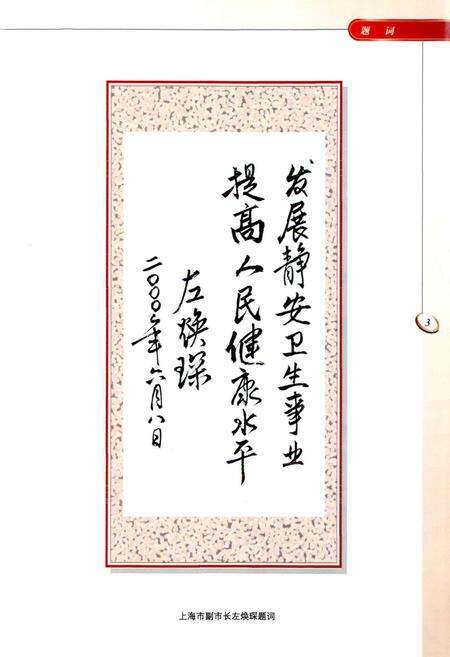 题 词
发展静安卫生事业
提高人民健康水平
左焕琛
二〇〇〇年六月八日
3
上海市副市长左焕琛题词